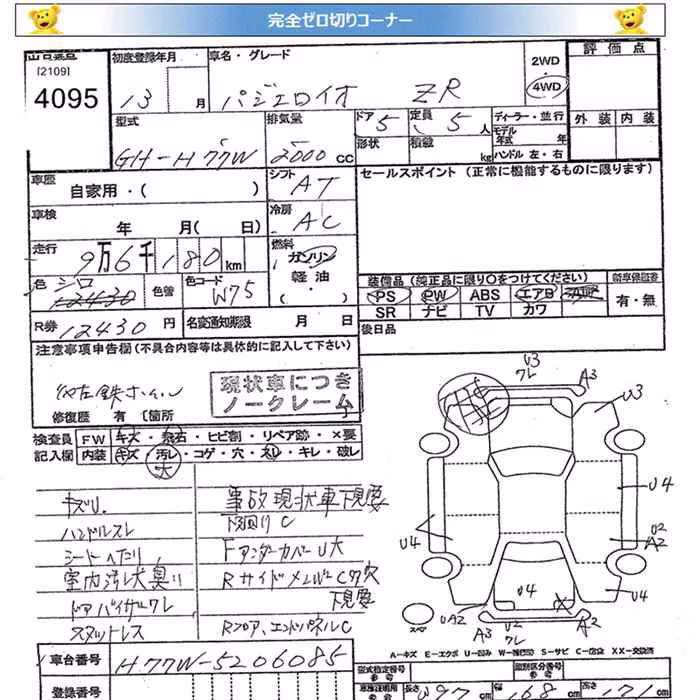 完全ゼロ切りコーナー
[2109]
4095
初度登録年月
13 月
車名・グレード
パジェロイオ ZR
2WD
4WD
評価点
型式
GH-H77W
排気量
2000 cc
ドア 5
形状
定員 5 人
積載 kg
ディーラー・並行
モデル年式 年
ハンドル 左・右
外装 内装
車歴
自家用・( )
シフト AT
セールスポイント (正常に機能するものに限ります)
車検
年 月( 日)
冷房 AC
走行
9万6千180 km
燃料
ガソリン
軽油
( )
色 シロ
色替
色コード W75
装備品 (純正品に限り○をつけてください)
新車保証書
PS PW ABS エアB
SR ナビ TV カワ
有・無
R券 12430 円
名変通知期限 月 日
後日品
注意事項申告欄(不具合内容等は具体的に記入して下さい)
社外鉄ホイル
現状車につき
ノークレーム
修復歴 有 〔箇所
検査員
記入欄
FW キズ・飛石・ヒビ割・リペア跡・×要
内装 キズ・汚レ・コゲ・穴・スレ・キレ・破レ
大
キズU
ハンドルスレ
シートヘタリ
室内汚レ大臭い
ドアバイザーワレ
スタットレス
事故現状車下見要
下廻りC
FアンダーカバーU大
RサイドメンバーC穴
下見要
Rフロア、エンドパネルC
U3
ワレ
A3
U3
U4
U4
U2
A2
U4
U4
UA2
A3
U2
ワレ
A2
スペア
A-キズ E-エクボ U-凹み W-補修跡 S-サビ C-腐食 XX-交換済
車台番号
H77W-5206085
型式指定番号
類別区分番号
登録番号
長さ
cm 168 cm 171 cm